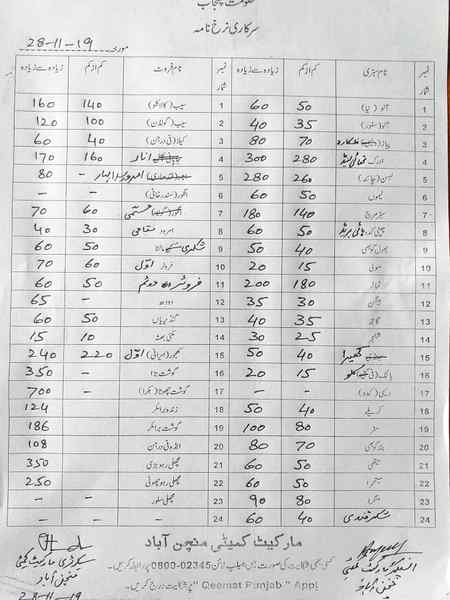 حکومت پنجاب
سرکاری نرخ نامہ
مورخہ 28-11-19
نمبر شمار نام سبزی کم از کم زیادہ سے زیادہ نمبر شمار نام فروٹ کم از کم زیادہ سے زیادہ
1 آلو (نیا) 50 60 1 سیب (کالاکلو) 140 160
2 آلو (سٹور) 35 40 2 سیب (گولڈن) 100 120
3 پیاز 70 80 3 کیلا (فی درجن) 40 60
4 ادرک تھائی لینڈ 280 300 4 انار 160 170
5 لہسن (چائنہ) 260 280 5 - 80
6 لیموں 50 60 6 انگور (سندرخانی)
7 سبز مرچ 140 180 7 60 70
8 50 60 8 امرود مقامی 30 40
9 پھول گوبھی 40 50 9 شکری 50 60
10 مولی 15 20 10 فروٹر اول 60 70
11 ٹماٹر 180 200 11 فروٹر دوئم 50 60
12 بینگن 30 35 12 دودھ - 65
13 گاجر 35 40 13 گنڈیریاں 50 60
14 شلجم 25 30 14 مکئی بھٹہ 10 15
15 کھیرا 40 50 15 کھجور (ایرانی) اول 220 240
16 پالک 15 20 16 گوشت بڑا - 350
17 - - 17 گوشت چھوٹا (بکرا) - 700
18 کریلے 40 50 18 زندہ برائلر 124
19 مٹر 80 100 19 گوشت برائلر 186
20 بند گوبھی 70 80 20 انڈہ فی درجن 108
21 میتھی 50 60 21 مچھلی رہو بڑی 350
22 50 60 22 مچھلی رہو چھوٹی 250
23 80 90 23 مچھلی سلور - -
24 شکرقندی 40 60 24 - -
مارکیٹ کمیٹی منچن آباد
کسی بھی شکایت کی صورت میں ہیلپ لائن 0800-02345 پر ڈائل کریں۔
"Qeemat Punjab" App پر شکایت درج کریں۔
انسپکٹر مارکیٹ کمیٹی منچن آباد
سیکرٹری مارکیٹ کمیٹی منچن آباد
28-11-19